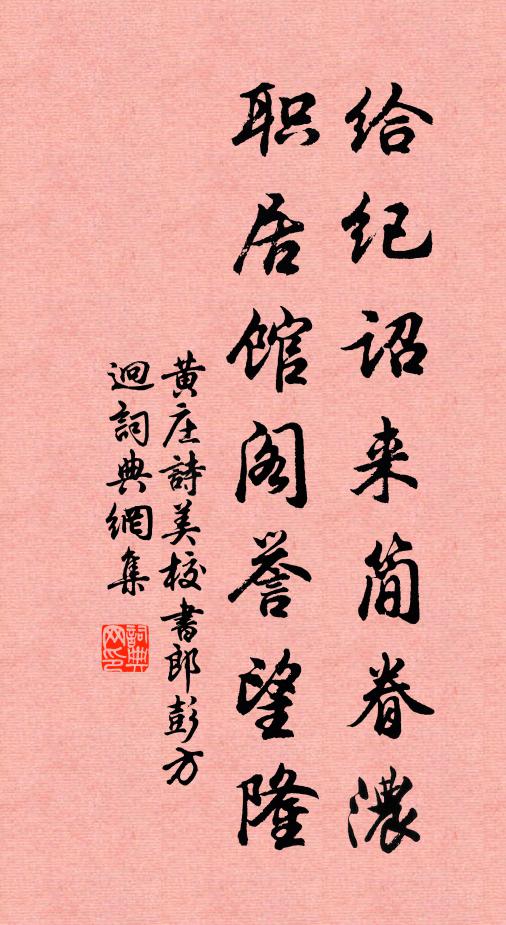 给纪诏来简眷濃
职居馆阁誉望隆
黄庄詩美校書郎彭方
迥詞典網集
詞典網印